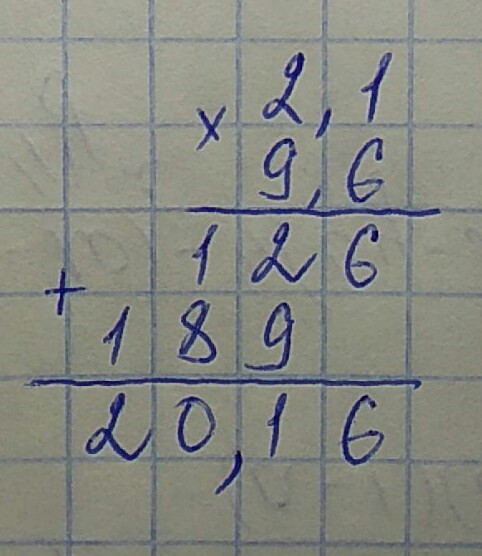 × 2,1
9,6
126
+ 189
20,16